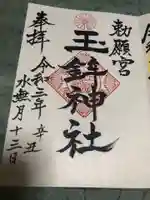 勅願宮
玉鉾神社
奉拝
令和三年辛丑
水無月十三日